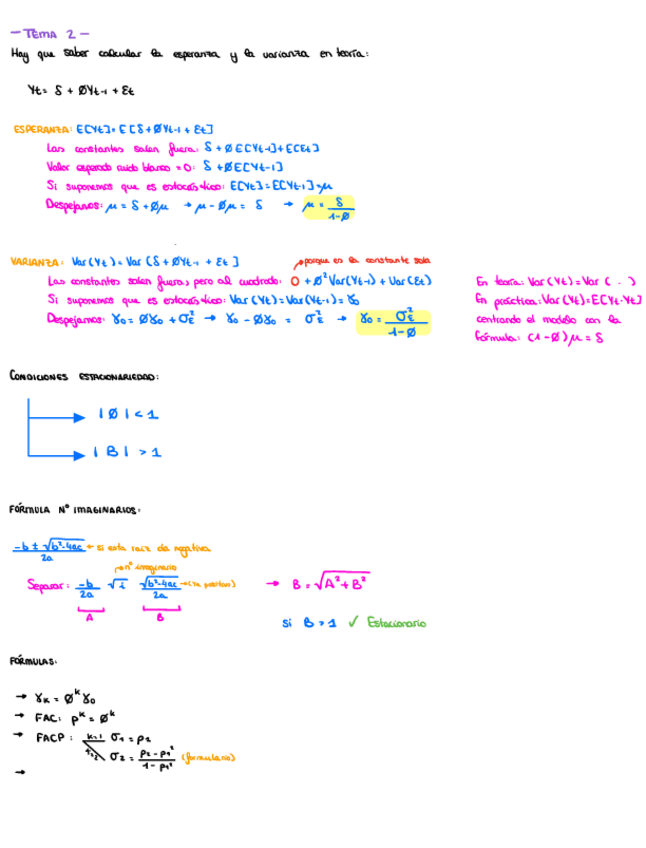 - TEMA 2 -
Hay que saber calcular la esperanza y la varianza en teoría:
Yt = δ + ØYt-1 + Et
ESPERANZA: E[Yt] = E[δ + ØYt-1 + Et]
Las constantes salen fuera: δ + ØE[Yt-1] + E[Et]
Valor esperado ruido blanco = 0: δ + ØE[Yt-1]
Si suponemos que es estocástico: E[Yt] = E[Yt-1] = μ
Despejamos: μ = δ + Øμ → μ - Øμ = δ → μ = δ / 1-Ø
VARIANZA: Var(Yt) = Var(δ + ØYt-1 + Et] porque es la constante sola
Las constantes salen fuera, pero al cuadrado: 0 + Ø² Var(Yt-1) + Var(Et)
Si suponemos que es estocástico: Var(Yt) = Var(Yt-1) = γ0
Despejamos: γ0 = Øγ0 + σE² → γ0 - Øγ0 = σE² → γ0 = σE² / 1-Ø
En teoría: Var(Yt) = Var( . )
En práctica: Var(Yt) = E[Yt·Yt]
centrando el modelo con la
fórmula: (1-Ø)μ = δ
CONDICIONES ESTACIONARIEDAD:
|Ø| < 1
|B| > 1
FÓRMULA Nº IMAGINARIOS:
-b ± √b²-4ac / 2a ← si esta raíz da negativa
nº imaginario
Separar: -b / 2a √i √b²-4ac / 2a → (ya positivo) → B = √A² + B²
A B
Si B > 1 ✓ Estacionario
FÓRMULAS:
→ γk = Ø^k γ0
→ FAC: ρ^k = Ø^k
→ FACP: k=1 σ1 = ρ1
k=2 σ2 = ρ2 - ρ1² / 1 - ρ1² (formulario)
→